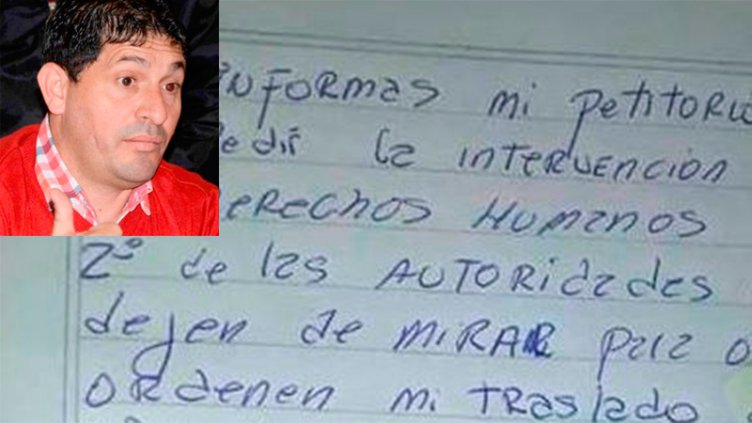 informas mi petitorio
pedir la intervención
Derechos Humanos
2º de las AUTORidades
dejen de MIRAR para o
ORdenen mi TRASlado